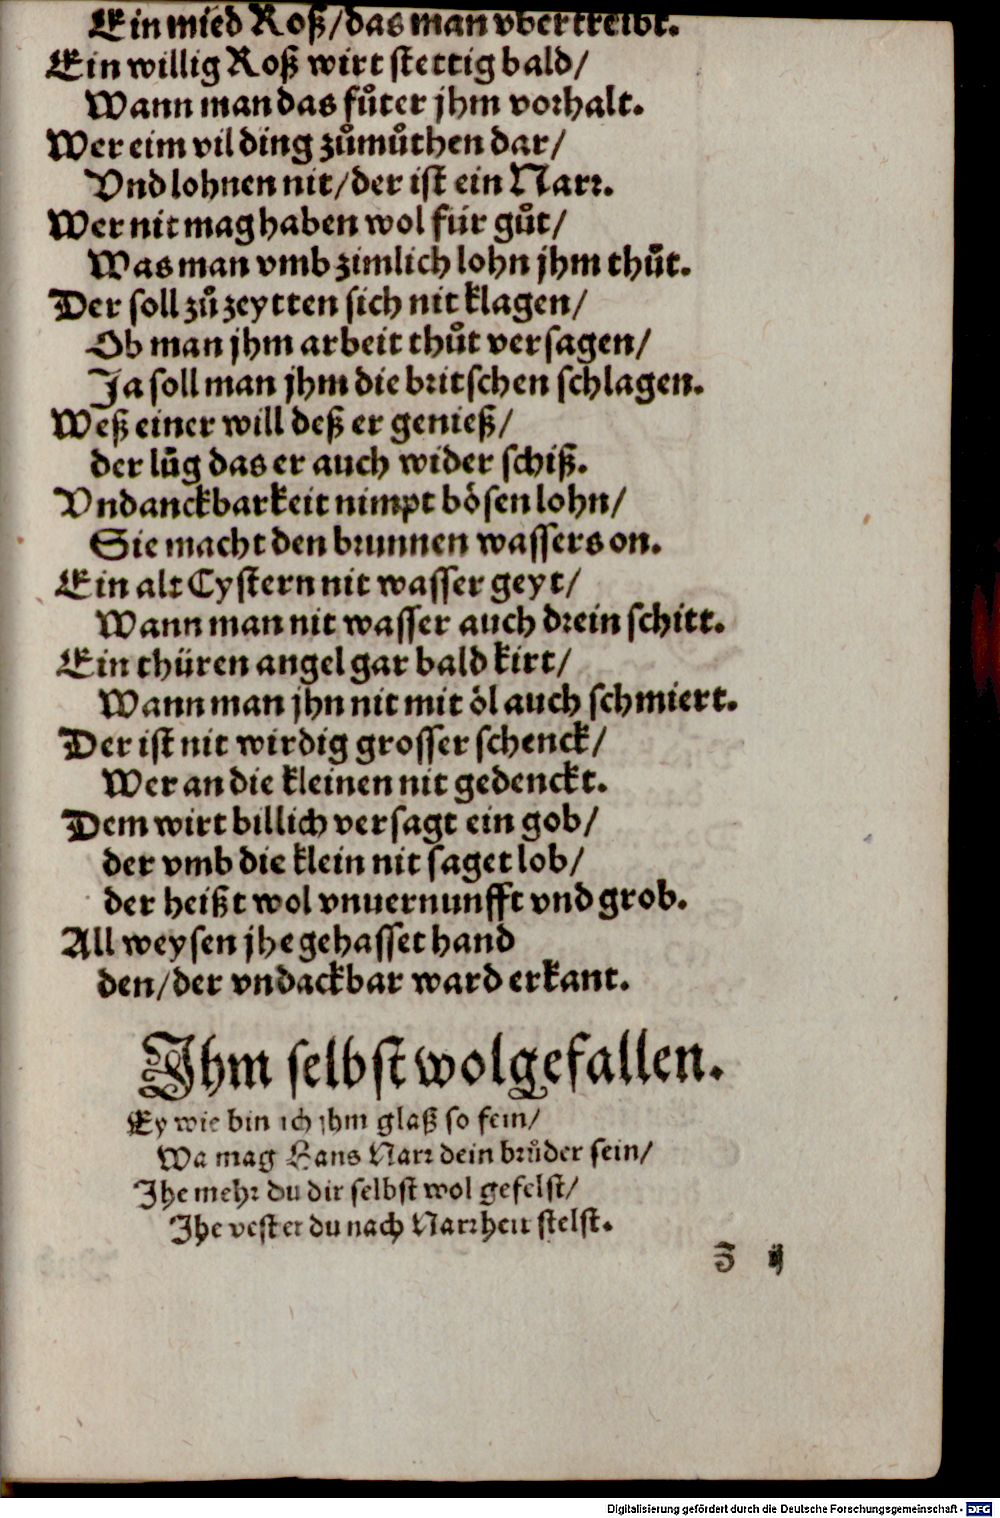 Ein mied Roß/das man vbertreibt.
Ein willig Roß wirt stettig bald/
Wann man das fůter jhm vorhalt.
Wer eim vil ding zůmůthen dar/
Vnd lohnen nit/der ist ein Narr.
Wer nit mag haben wol für gůt/
Was man vmb zimlich lohn jhm thůt.
Der soll zů zeytten sich nit klagen/
Ob man jhm arbeit thůt versagen/
Ja soll man jhm die britschen schlagen.
Weß einer will deß er genieß/
der lůg das er auch wider schiß.
Vndanckbarkeit nimpt bösen lohn/
Sie macht den brunnen wassers on.
Ein alt Cystern nit wasser geyt/
Wann man nit wasser auch drein schitt.
Ein thüren angel gar bald kirt/
Wann man jhn nit mit öl auch schmiert.
Der ist nit wirdig grosser schenck/
Wer an die kleinen nit gedenckt.
Dem wirt billich versagt ein gob/
der vmb die klein nit saget lob/
der heißt wol vnuernunfft vnd grob.
All weysen jhe gehasset hand
den/der vndackbar ward erkant.
Ihm selbst wolgefallen.
Ey wie bin ich jhm glaß so fein/
Wa mag Hans Narr dein brůder sein/
Jhe mehr du dir selbst wol gefelst/
Jhe vester du nach Narrheit stelst.
Z ij
Digitalisierung gefördert durch die Deutsche Forschungsgemeinschaft - DFG